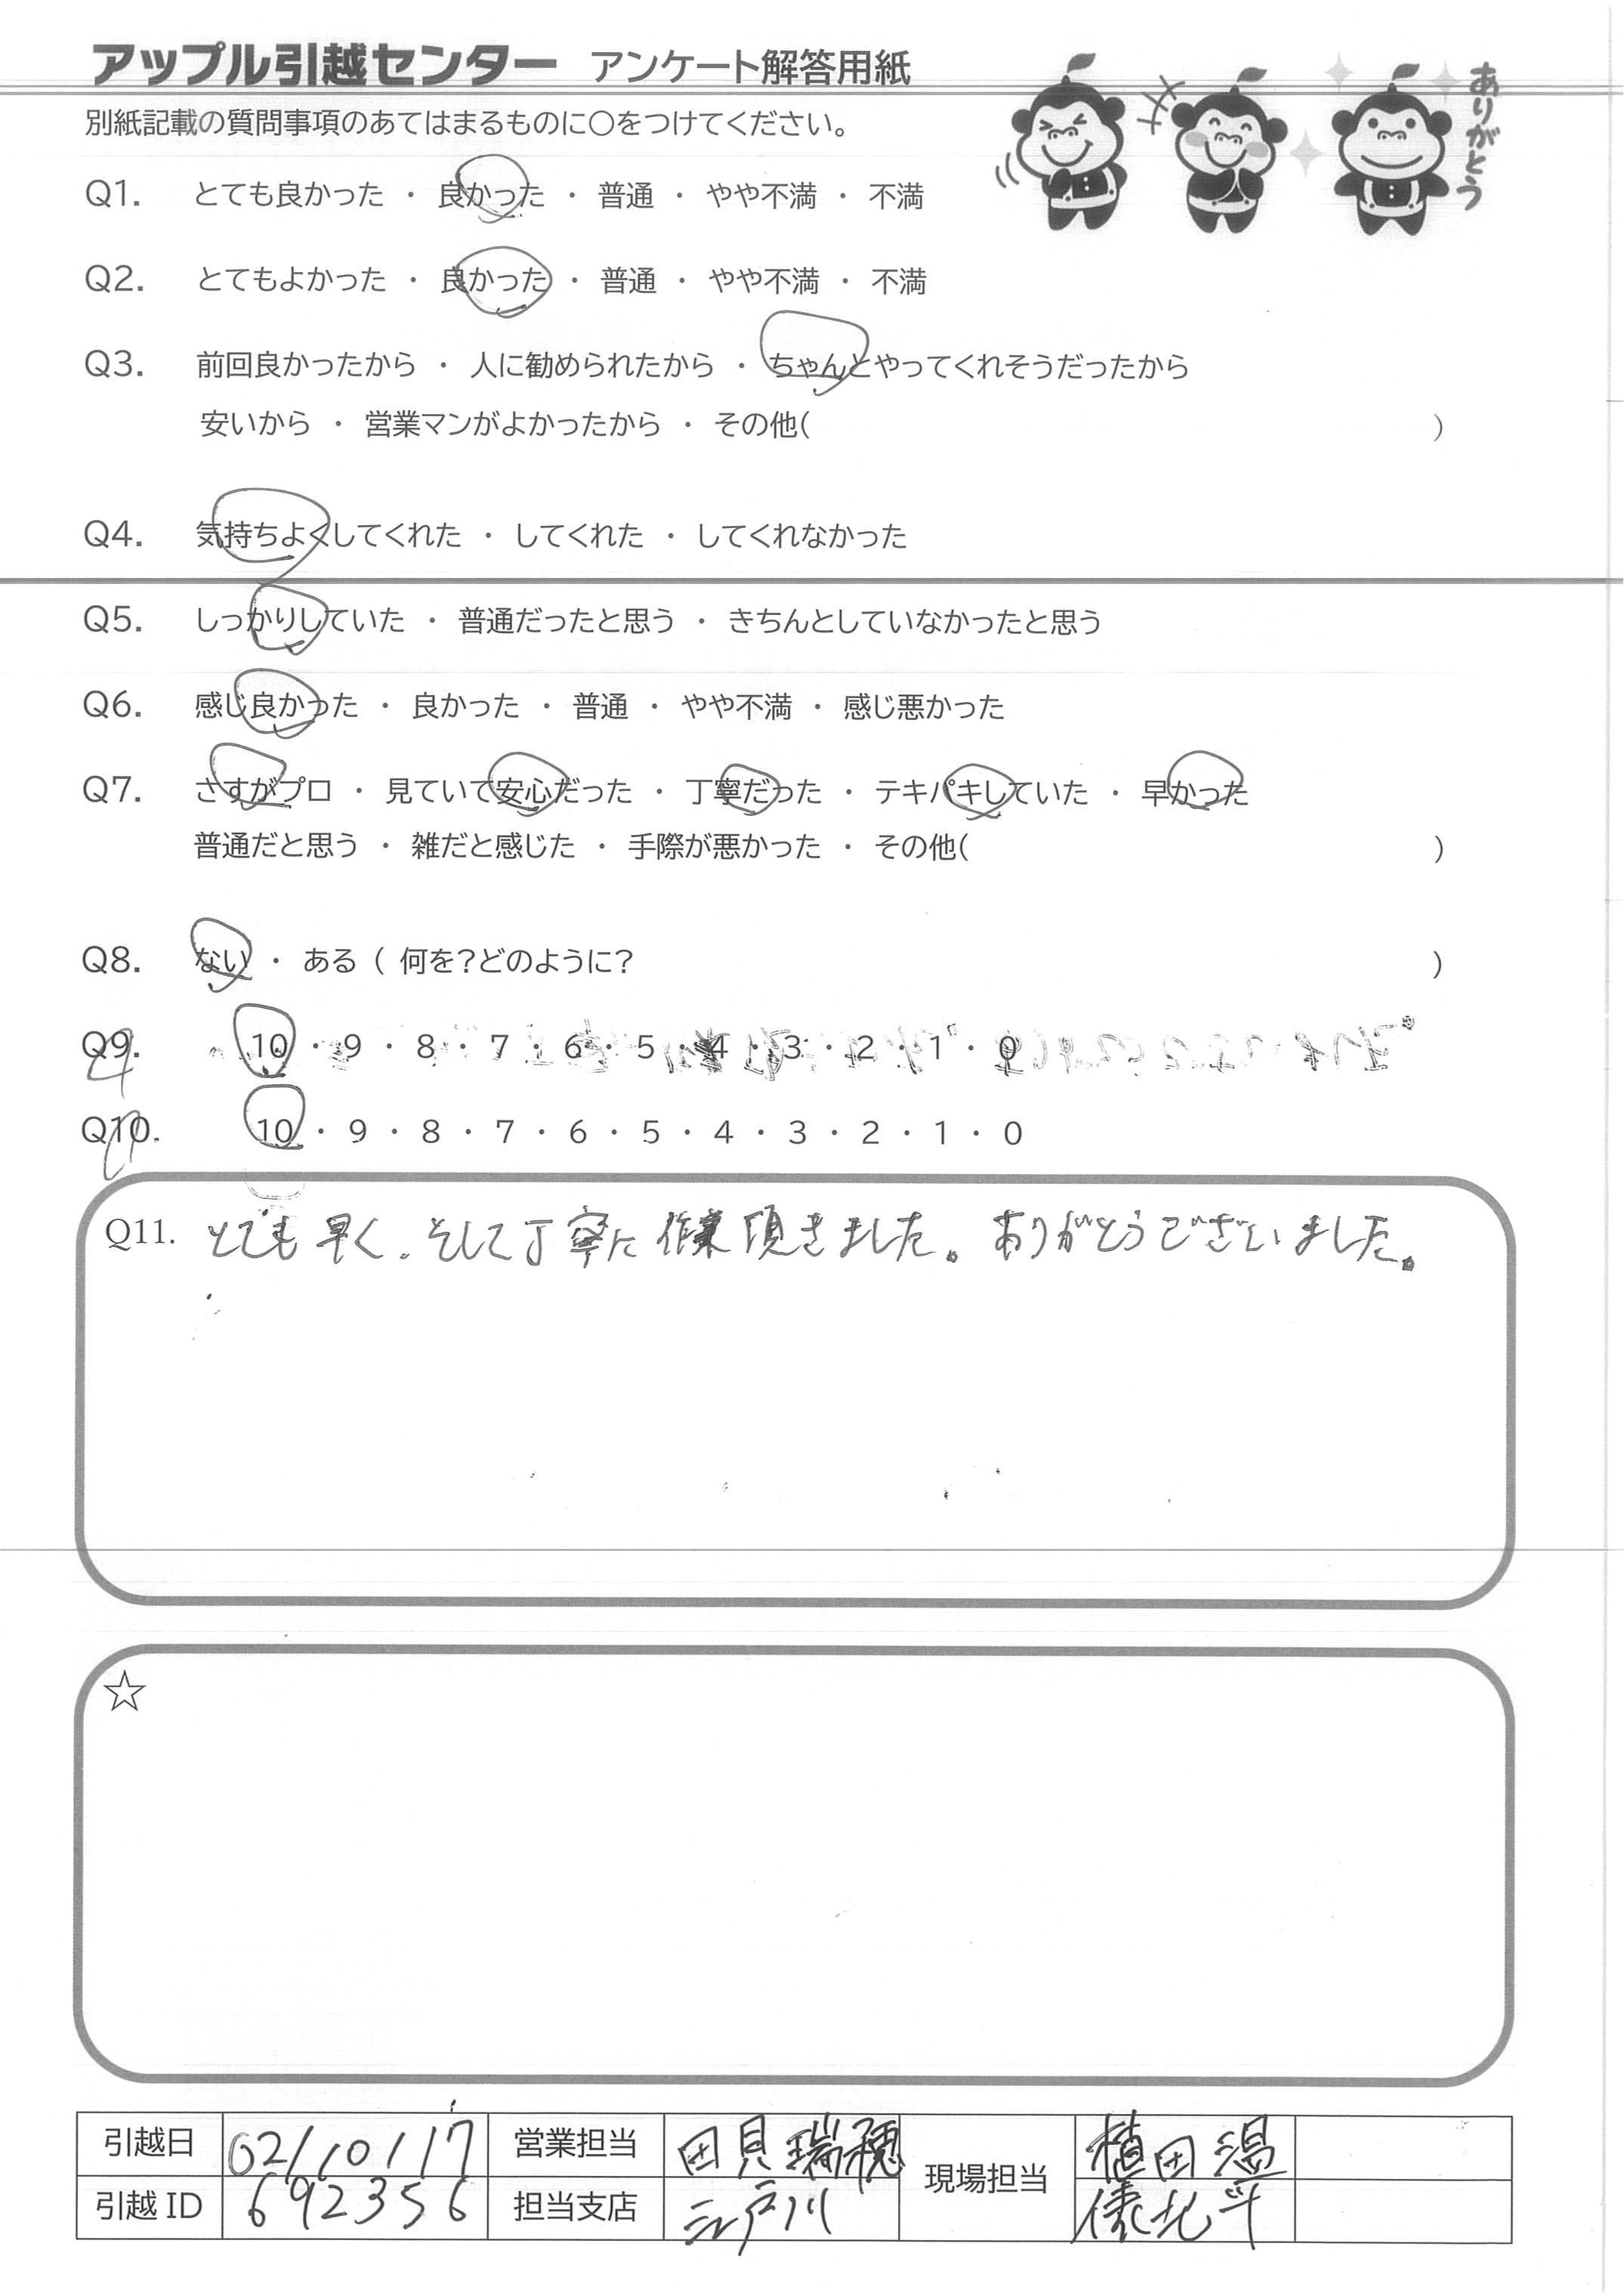 アップル引越センター アンケート解答用紙
ありがとう
別紙記載の質問事項のあてはまるものに〇をつけてください。
Q1. とても良かった ・ 良かった ・ 普通 ・ やや不満 ・ 不満
Q2. とてもよかった ・ 良かった ・ 普通 ・ やや不満 ・ 不満
Q3. 前回良かったから ・ 人に勧められたから ・ ちゃんとやってくれそうだったから
安いから ・ 営業マンがよかったから ・ その他( )
Q4. 気持ちよくしてくれた ・ してくれた ・ してくれなかった
Q5. しっかりしていた ・ 普通だったと思う ・ きちんとしていなかったと思う
Q6. 感じ良かった ・ 良かった ・ 普通 ・ やや不満 ・ 感じ悪かった
Q7. さすがプロ ・ 見ていて安心だった ・ 丁寧だった ・ テキパキしていた ・ 早かった
普通だと思う ・ 雑だと感じた ・ 手際が悪かった ・ その他( )
Q8. ない ・ ある ( 何を?どのように? )
Q9. 10 ・ 9 ・ 8 ・ 7 ・ 6 ・ 5 ・ 4 ・ 3 ・ 2 ・ 1 ・ 0
Q10. 10 ・ 9 ・ 8 ・ 7 ・ 6 ・ 5 ・ 4 ・ 3 ・ 2 ・ 1 ・ 0
Q11. とても早く、そして丁寧に作業頂きました。ありがとうございました。
☆
引越日 02/10/17 営業担当 田貝瑞穂 現場担当 植田 温
引越ID 692356 担当支店 江戸川 俵北斗